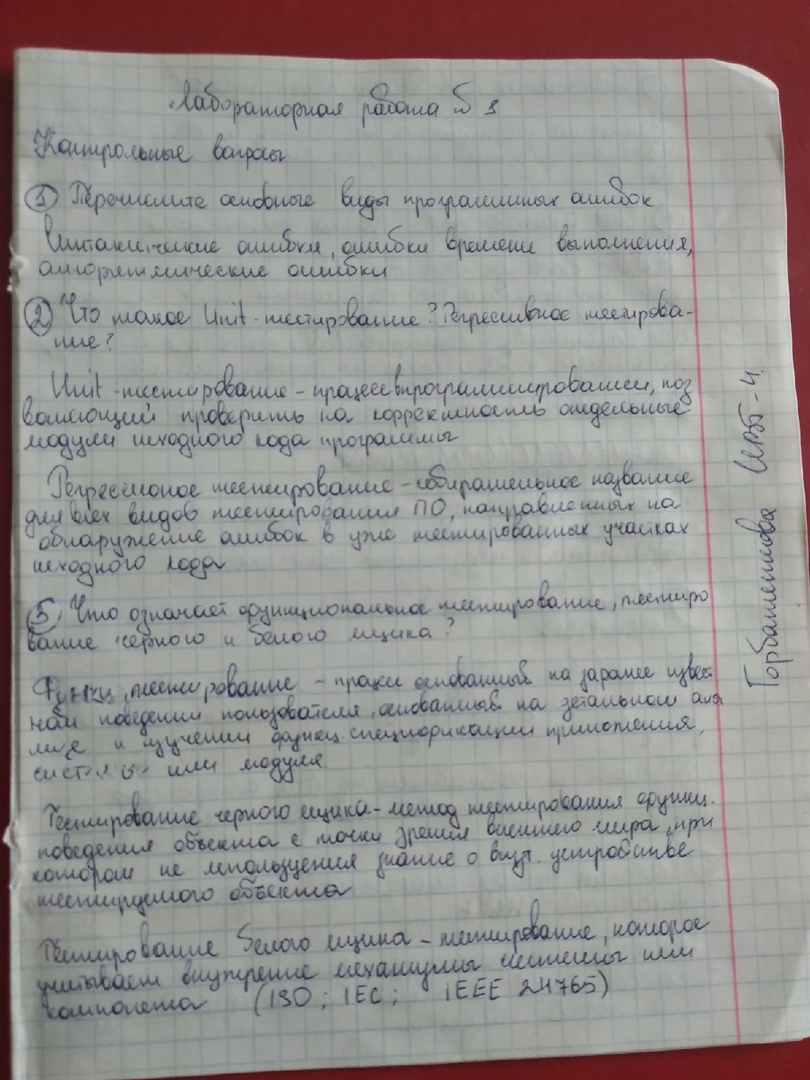 Лабораторная работа № 1
Контрольные вопросы
① Перечислите основные виды программных ошибок
Синтаксические ошибки, ошибки времени выполнения,
алгоритмические ошибки
② Что такое Unit-тестирование? Регрессивное тестирова-
ние?
Unit-тестирование - процесс в программировании, поз
воляющий проверить на корректность отдельные
модули исходного кода программы
Регрессионое тестирование - собирательное название
для всех видов тестирования ПО, направленных на
обнаружение ошибок в уже тестированных участках
исходного кода
③. Что означает функциональное тестирование, тестиро
вание черного и белого ящика?
Функц. тестирование - процесс основанный на заранее извест
ном поведении пользователя, основанный на детальном ана
лизе и изучении функц. спецификации приложения,
системы или модуля.
Тестирование черного ящика - метод тестирования функц.
поведения объекта с точки зрения внешнего мира, при
котором не используется знание о внут. устройстве
тестируемого объекта
Тестирование белого ящика - тестирование, которое
учитывает внутрение механизмы системы или
компонента (ISO; IEC; IEEE 24765)